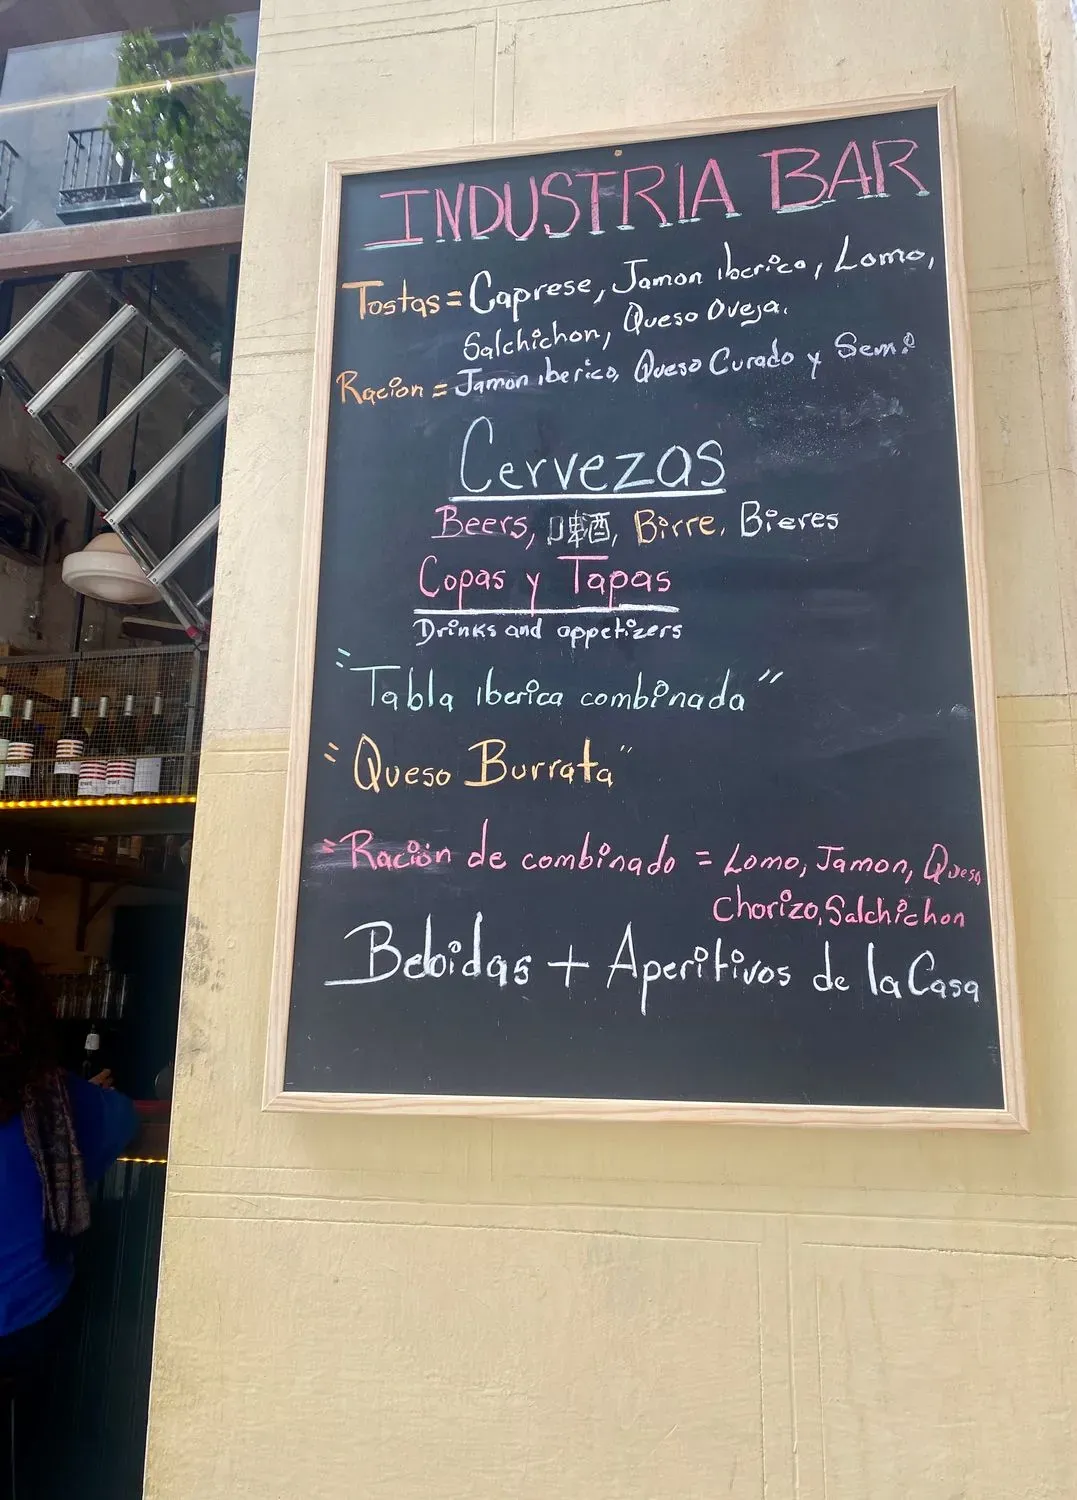 INDUSTRIA BAR
Tostas = Caprese, Jamon iberico, Lomo,
Salchichon, Queso Oveja.
Racion = Jamon iberico, Queso Curado y Semi
Cervezas
Beers, 啤酒, Birre, Bieres
Copas y Tapas
Drinks and appetizers
"Tabla iberica combinada"
"Queso Burrata"
"Ración de combinado = Lomo, Jamon, Queso
Chorizo, Salchichon
Bebidas + Aperitivos de la Casa